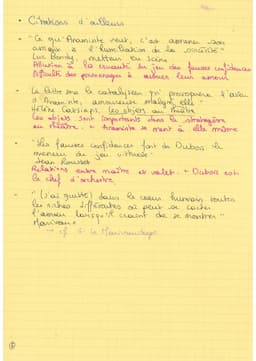 • Citations d'ailleurs
- "Ce que Araminte veut, c'est amener son
à l'humiliation de la
Luc Bondy, metteur en scène
Allusion à la cruauté du jeu des fausses confidences
Difficulté des personnages à avouer leur amour
- La lettre est le catalyseur qui provoquera l'aveu
d'Araminte, amoureuse malgré elle"
Hélène Catsiapis, les objets au théâtre
Les objets sont importants dans le stratagème
au théâtre. + Araminte se ment à elle même
- "Les fausses confidences font de Dubois le
meneur du jeu virtuose"
Jean Rousset
Relations entre maître et valet. + Dubois est
le chef d'orchestre.
- "J'ai guetté dans le cœur humain toutes
les niches différentes où peut se cacher
l'amour lorsqu'il craint de se montrer"
Marivaux
→ cf § le Marivaudage